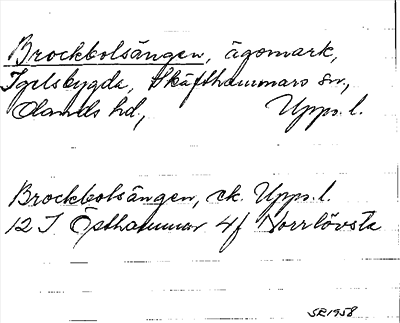 Brockbolsängen, ägomark,
Igelsbygda, Skäfthammars sn,
Olands hd, Upps. l.
Brockbolsängen, ek. Upps. l.
12 I Östhammar 4f Norrlövsta
SE 1958